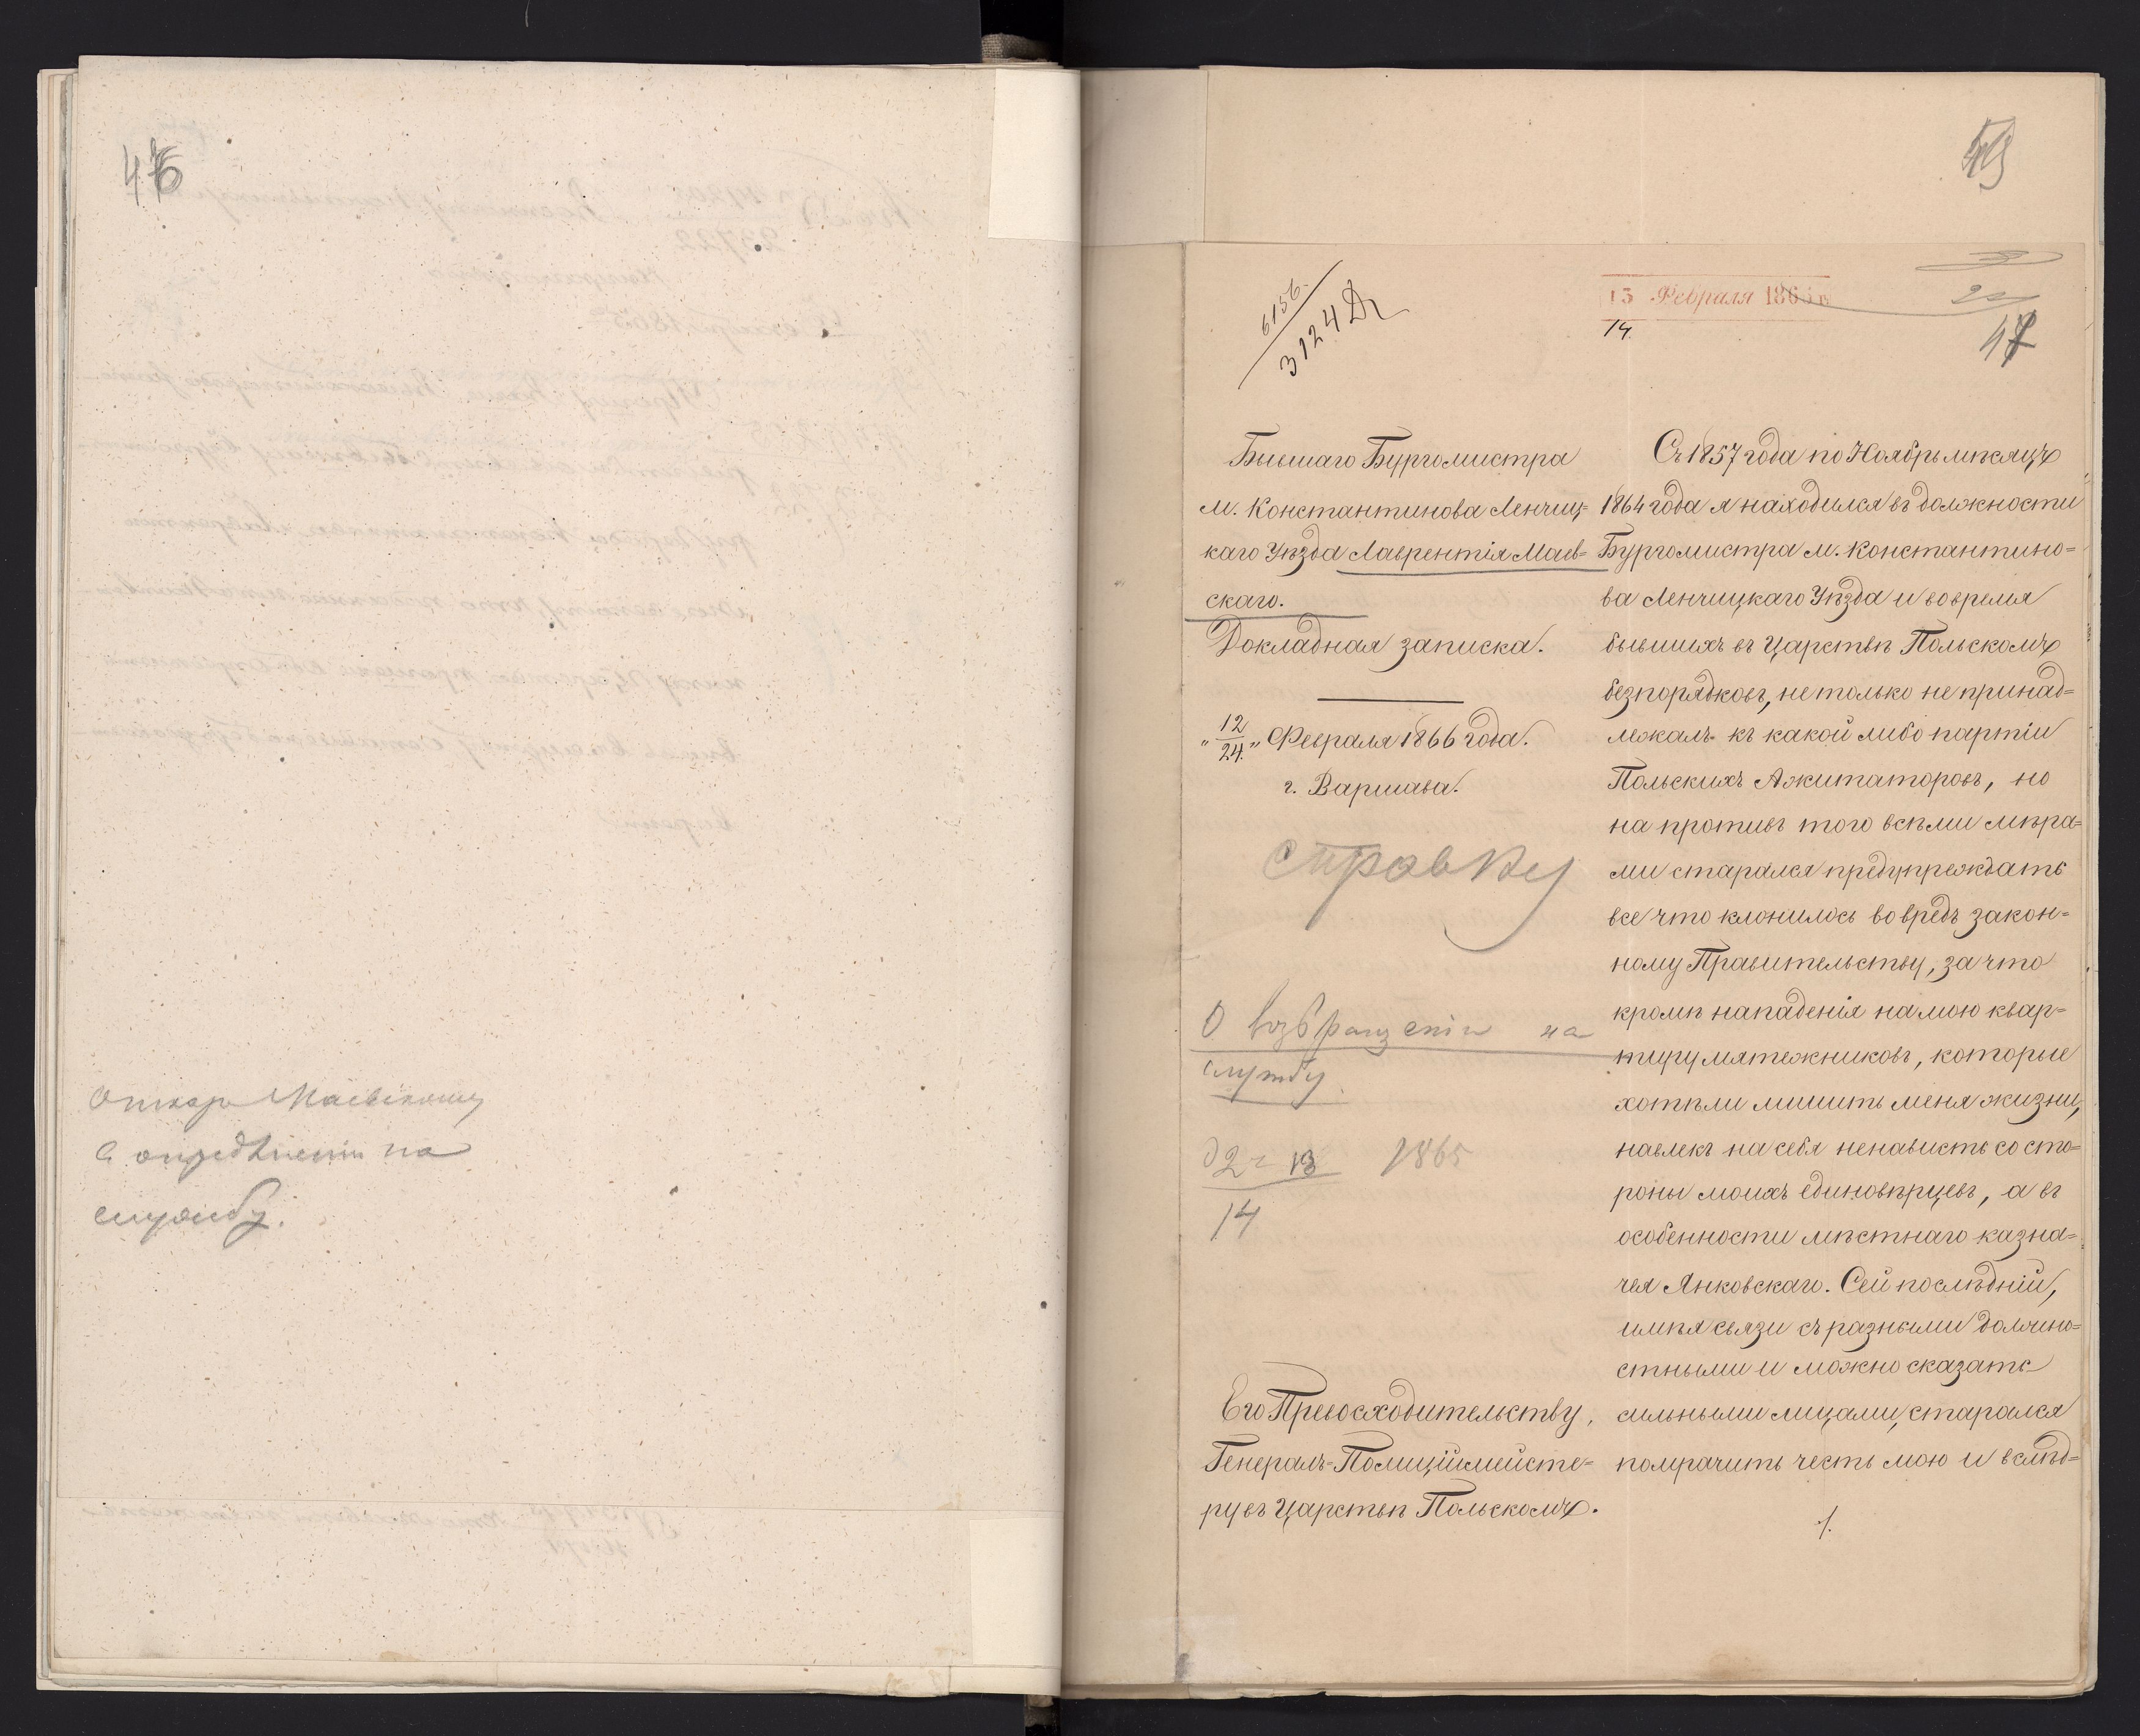 46
Маевскому
о опредѣленіи на
службу.
49
6156.
3124
13 Февраля 1866
14.
47
Бывшаго Бургомистра
м. Константинова Ленчиц=
каго Уѣзда Лаврентія Маев=
скаго.
Докладная записка.
"12/24" Февраля 1866 года.
г. Варшава.
справку
О возвращеніи на
службу.
д 2 13 1865
14
Его Превосходительству,
Генералъ-Полиціймейсте=
ру въ Царствѣ Польскомъ.
Съ 1857 года по Ноябрь мѣсяцъ
1864 года я находился въ должности
Бургомистра м. Константино=
ва Ленчицкаго Уѣзда и во время
бывшихъ въ Царствѣ Польскомъ
безпорядковъ, не только не принад=
лежалъ къ какой либо партіи
Польскихъ Ажитаторовъ, но
на противъ того всѣми мѣра=
ми старался предупреждать
все что клонилось во вредъ закон=
ному Правительству, за что
кромѣ нападенія на мою квар=
тиру мятежниковъ, которые
хотѣли лишить меня жизни,
навлекъ на себя ненависть со сто=
роны моихъ единовѣрцевъ, а въ
особенности мѣстнаго казна=
чея Янковскаго. Сей послѣдній,
имѣя связи съ разными должно=
стными и можно сказать
сильными лицами, старался
помрачить честь мою и вслѣд=
1.